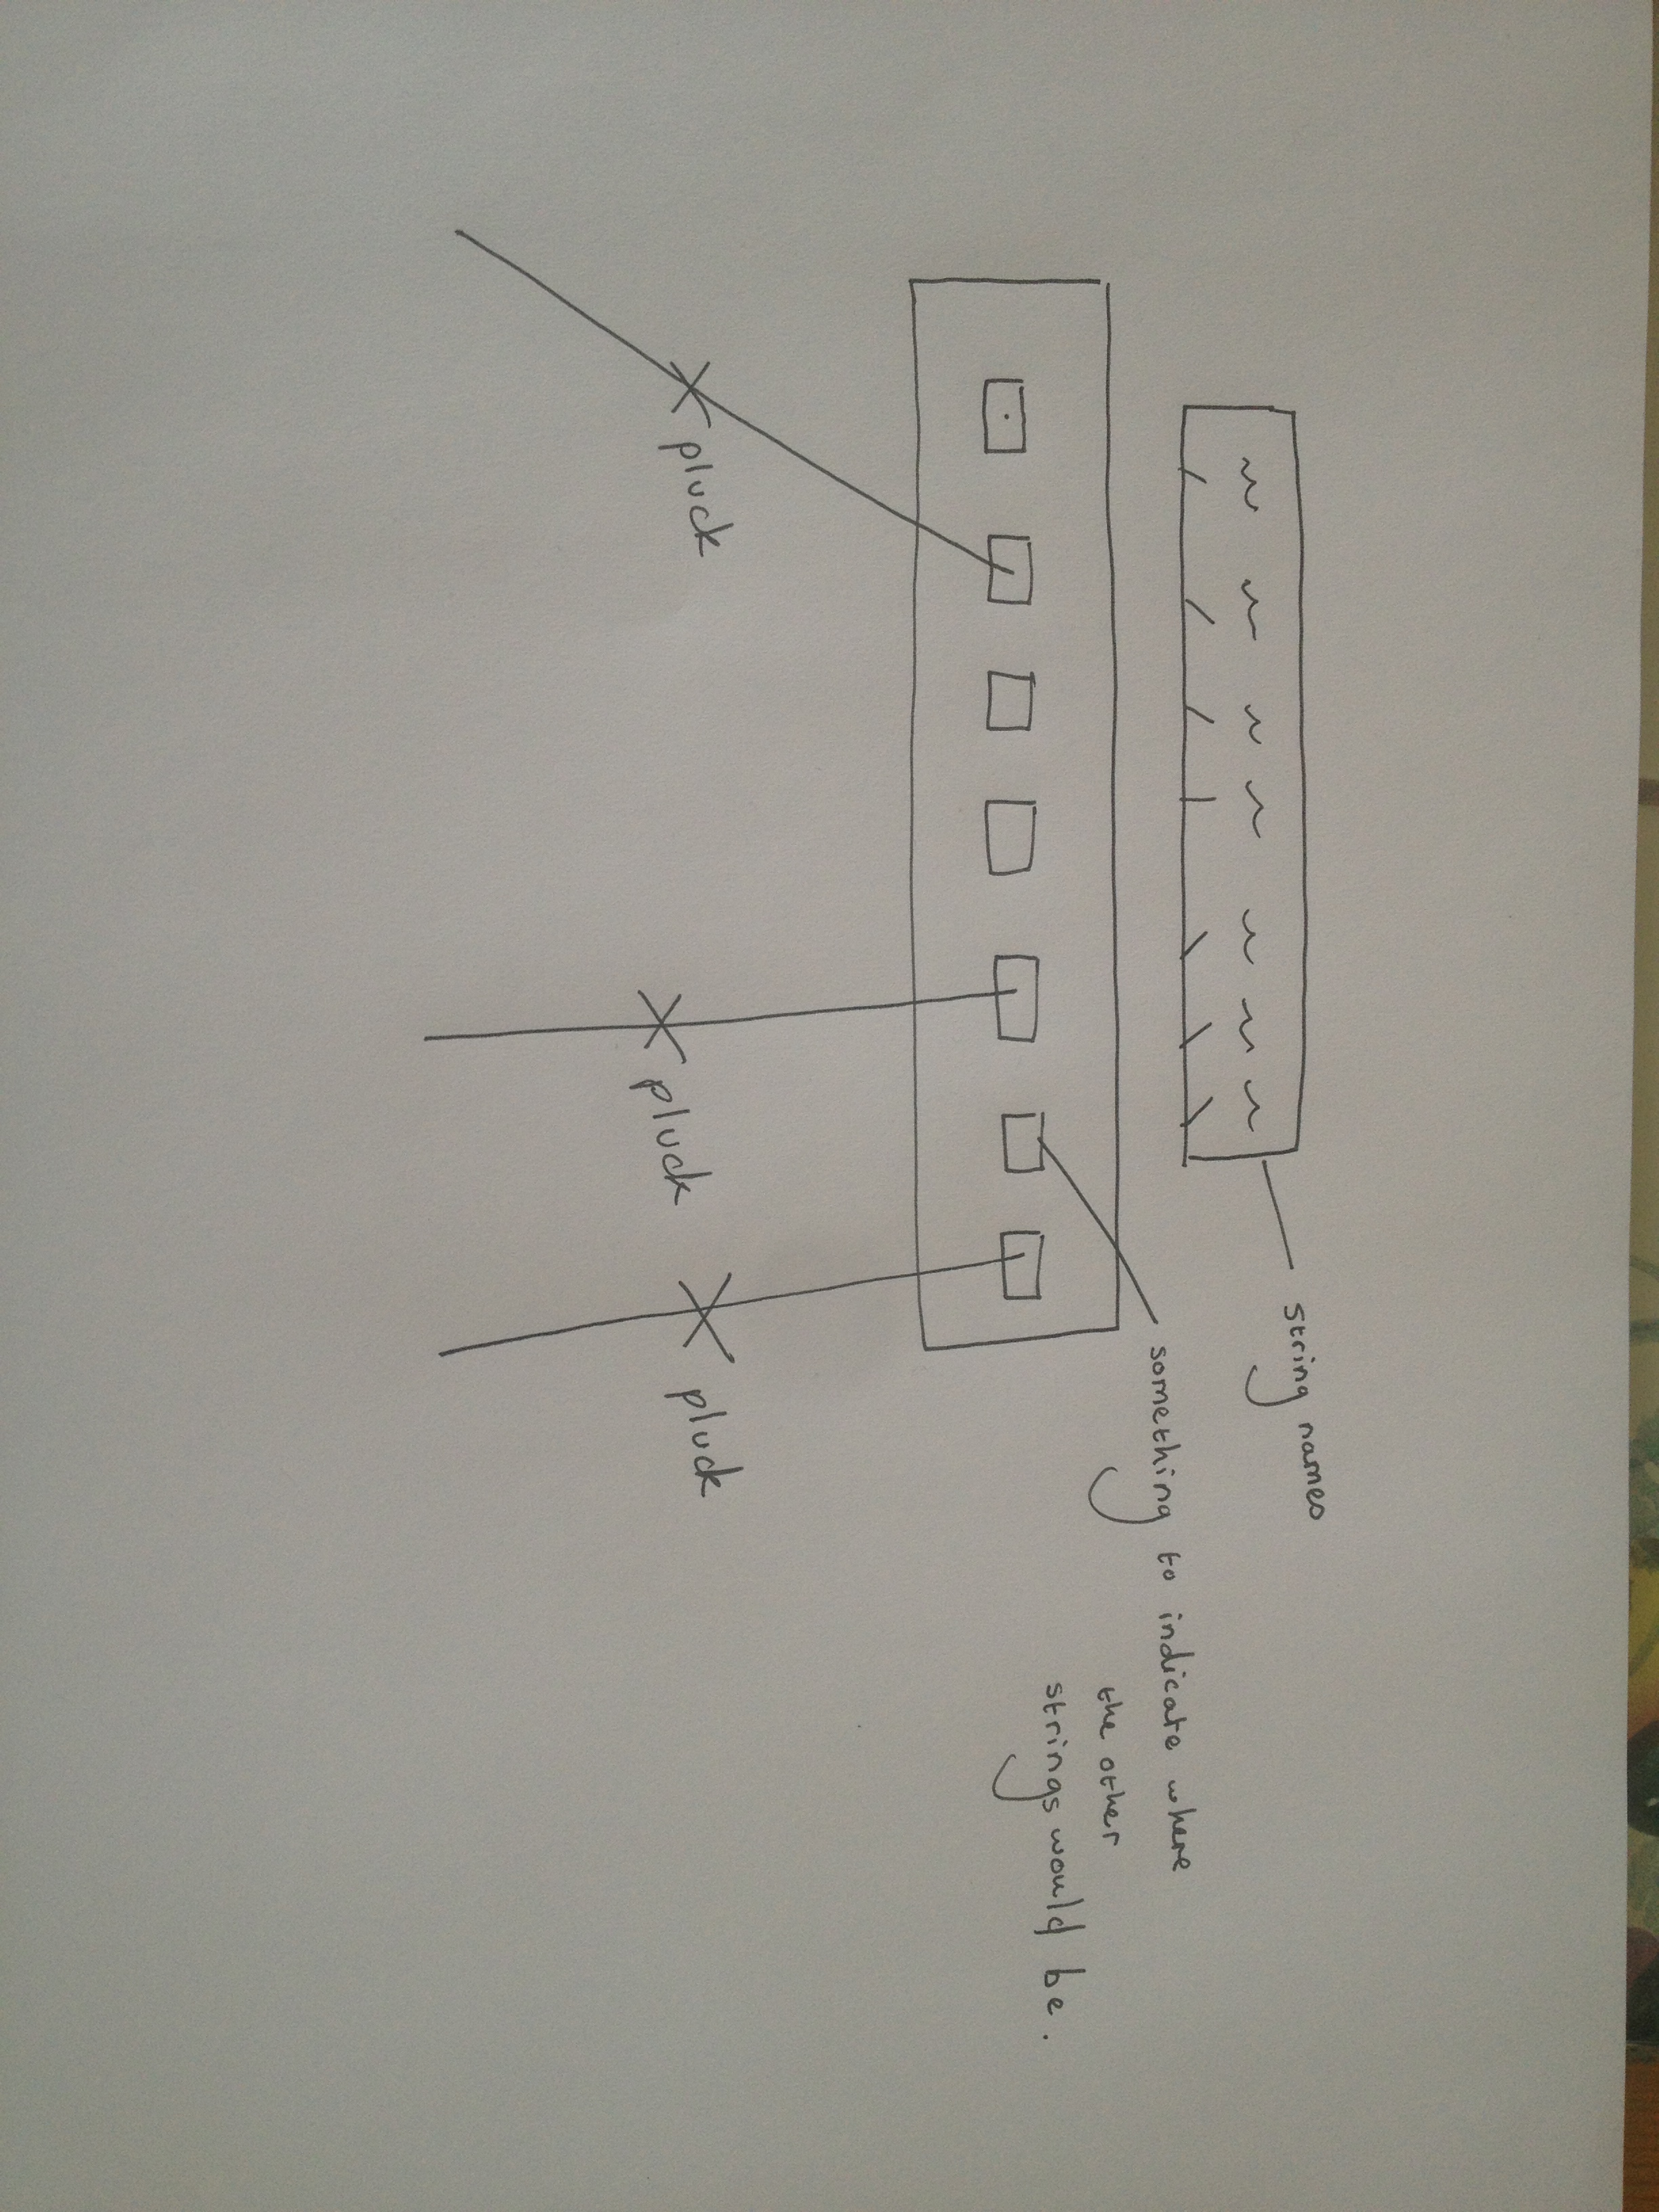 String names
something to indicate where
the other
strings would be.
pluck
pluck
pluck